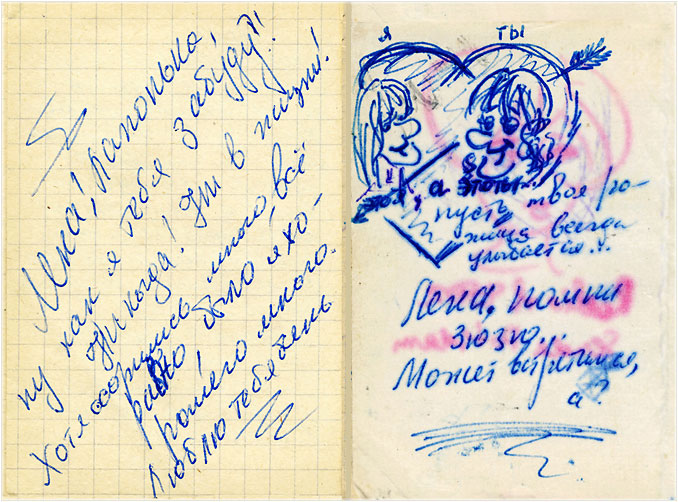 Лена! Лапонька,
ну как я тебя забуду?!
Ни когда! Ни в жизни!
Хотя ссорились много всё
равно было и хо-
рошего много.
Люблю тебя
я ты
это я, а это ты...
Пусть твоя ро-
жица всегда
улыбается...
Лена, помни
Может встретимся,
а?